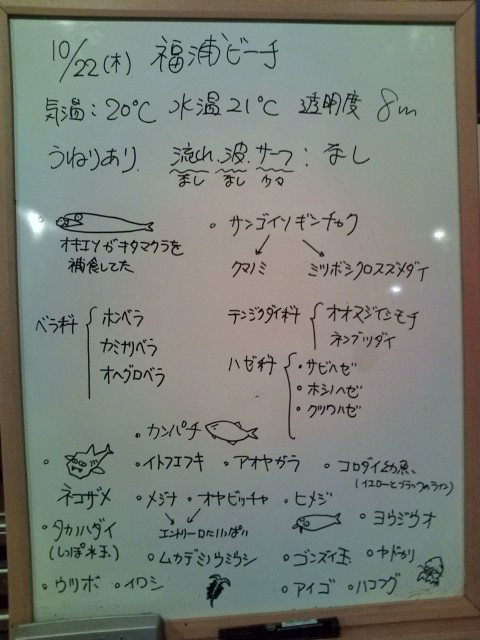 10/22(木) 福浦ビーチ
気温:20℃ 水温21℃ 透明度 8m
うねりあり 流れ.波.サーフ:なし
なし なし
オキエソがキタマクラを
補食してた
・サンゴイソギンチャク
クマノミ ミツボシクロスズメダイ
ベラ科
ホンベラ
カミナリベラ
オハグロベラ
テンジクダイ科
オオスジイシモチ
ネンブツダイ
ハゼ科
・サビハゼ
・ホシノハゼ
・クツワハゼ
・カンパチ
ネコザメ
・イトフエフキ ・アオヤガラ ・コロダイ幼魚、
(イエローとブラックのライン)
・メジナ ・オヤビッチャ ・ヒメジ
エントリー口にいっぱい
・タカノハダイ
(しっぽ水玉)
・ムカデミノウミウシ
・ヨウジウオ
・ゴンズイ玉 ・ヤドカリ
・ウツボ ・イワシ ・アイゴ ・ハコフグ